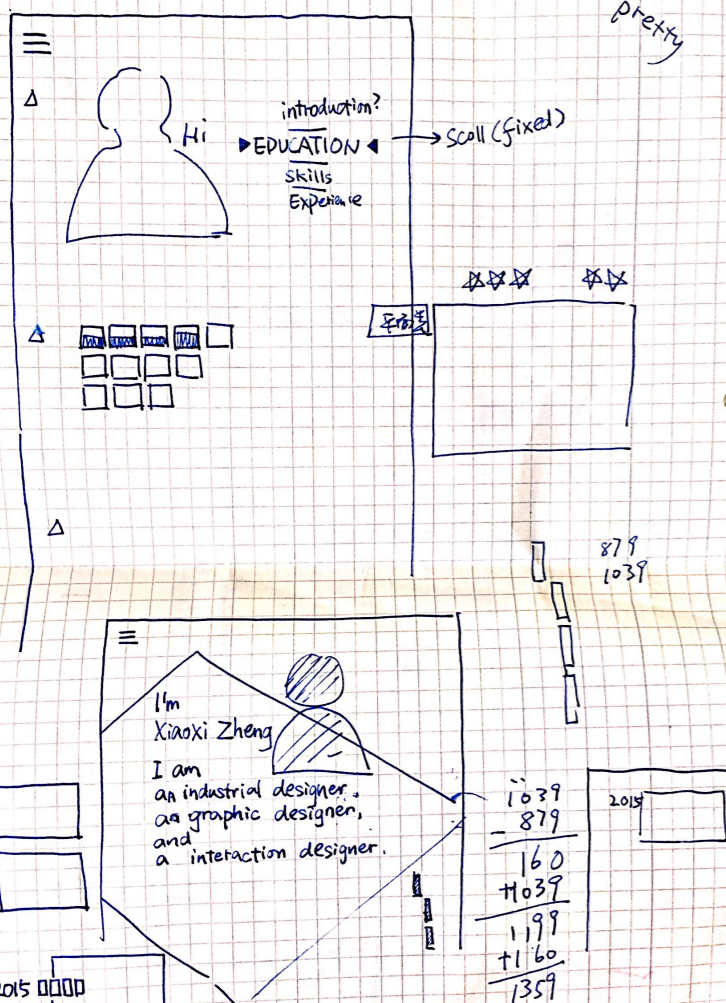 pretty
Hi
introduction?
EDUCATION
Skills
Experience
scoll (fixed)
879
1039
I'm
Xiaoxi Zheng
I am
an industrial designer,
a graphic designer,
and
a interaction designer.
1039
- 879
160
+1039
1199
+160
1359
2015
2015